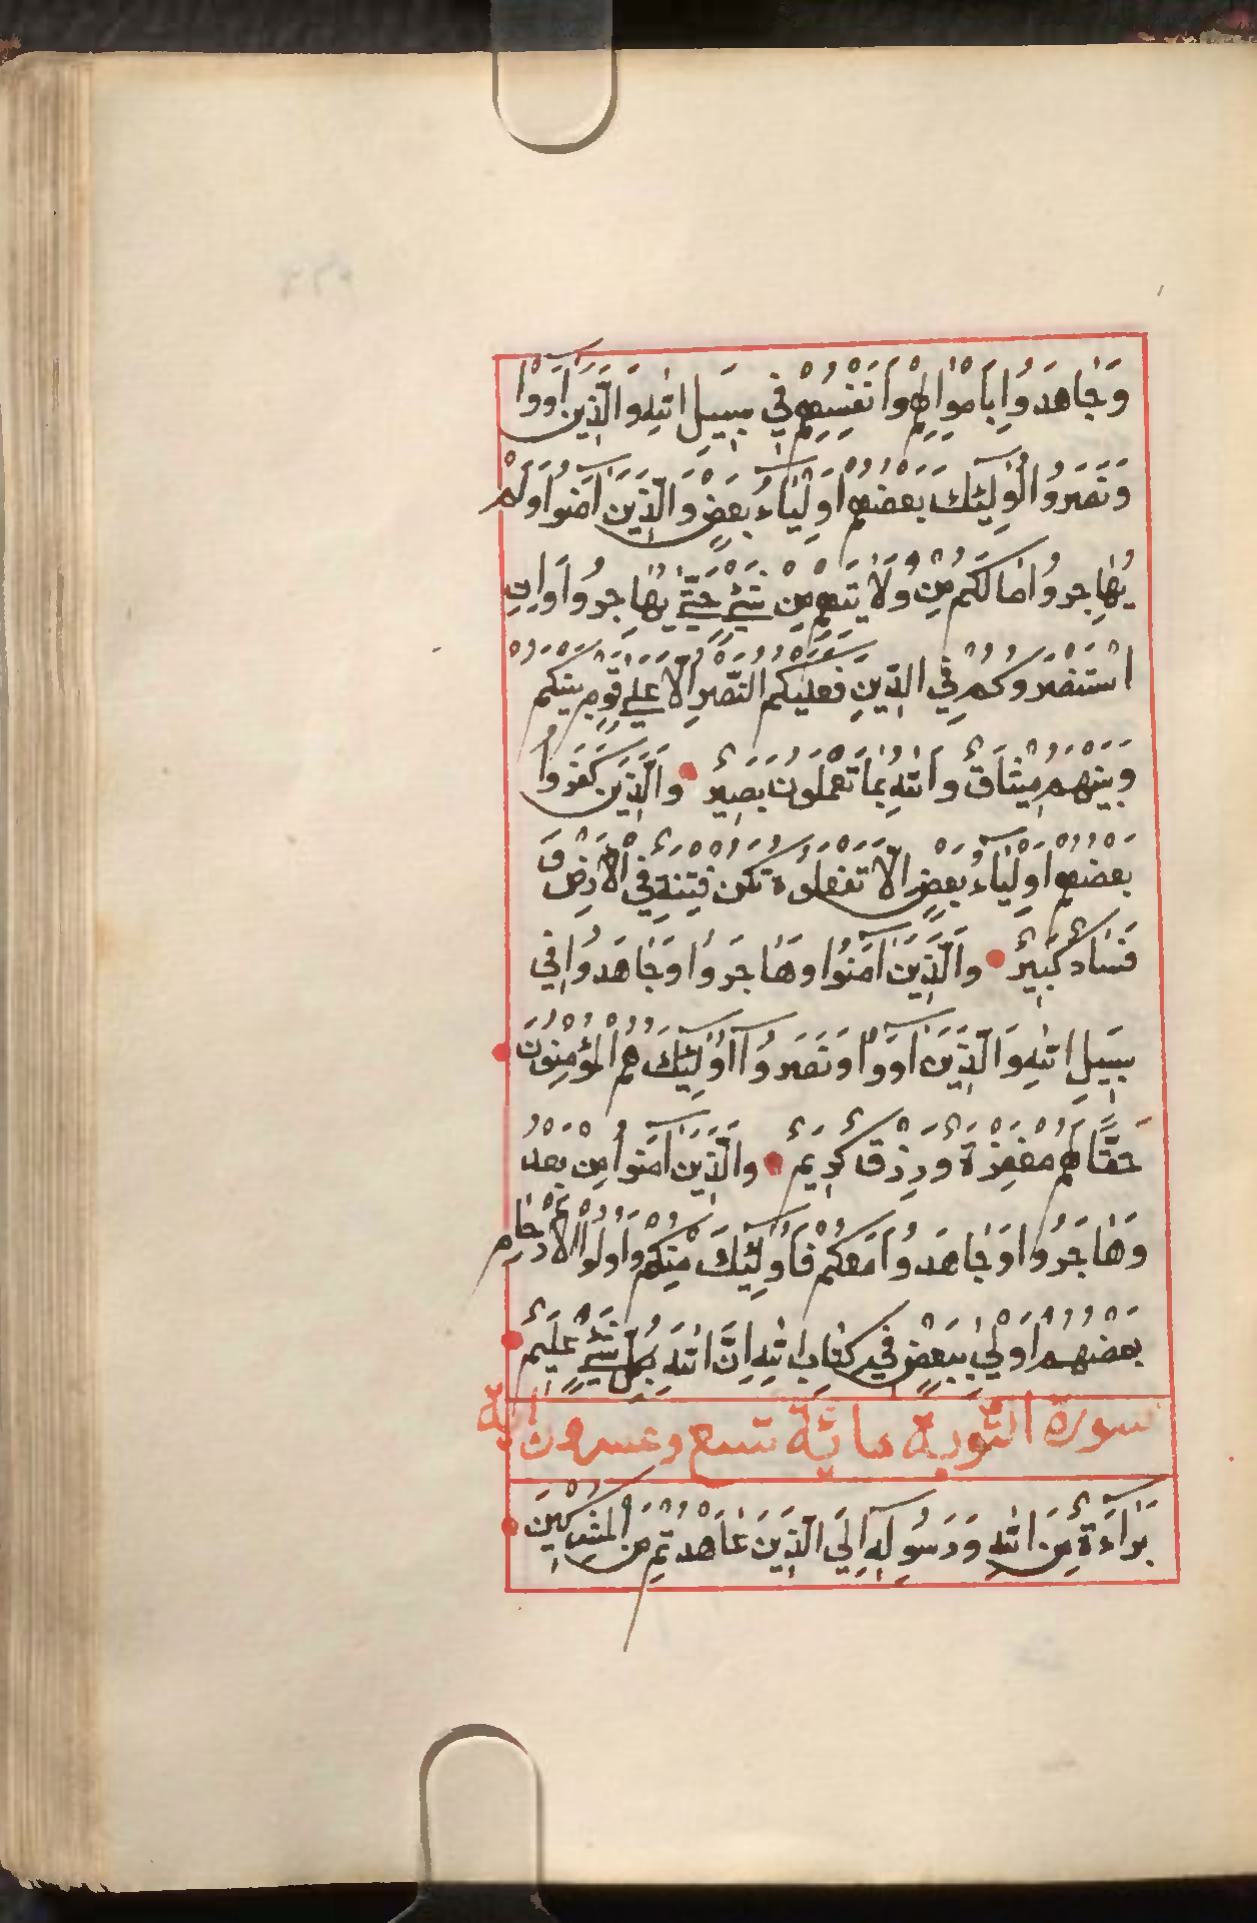 وَجَاهَدُوا بِأَمْوَالِهِمْ وَأَنْفُسِهِمْ فِي سَبِيلِ اللهِ وَالَّذِينَ آوَوْا
وَنَصَرُوا أُولَئِكَ بَعْضُهُمْ أَوْلِيَاءُ بَعْضٍ وَالَّذِينَ آمَنُوا وَلَمْ
يُهَاجِرُوا مَا لَكُمْ مِنْ وَلَايَتِهِمْ مِنْ شَيْءٍ حَتَّى يُهَاجِرُوا وَإِنِ
اسْتَنْصَرُوكُمْ فِي الدِّينِ فَعَلَيْكُمُ النَّصْرُ إِلَّا عَلَى قَوْمٍ بَيْنَكُمْ
وَبَيْنَهُمْ مِيثَاقٌ وَاللهُ بِمَا تَعْمَلُونَ بَصِيرٌ وَالَّذِينَ كَفَرُوا
بَعْضُهُمْ أَوْلِيَاءُ بَعْضٍ إِلَّا تَفْعَلُوهُ تَكُنْ فِتْنَةٌ فِي الْأَرْضِ وَ
فَسَادٌ كَبِيرٌ وَالَّذِينَ آمَنُوا وَهَاجَرُوا وَجَاهَدُوا فِي
سَبِيلِ اللهِ وَالَّذِينَ آوَوْا وَنَصَرُوا أُولَئِكَ هُمُ الْمُؤْمِنُونَ
حَقًّا لَهُمْ مَغْفِرَةٌ وَرِزْقٌ كَرِيمٌ وَالَّذِينَ آمَنُوا مِنْ بَعْدُ
وَهَاجَرُوا وَجَاهَدُوا مَعَكُمْ فَأُولَئِكَ مِنْكُمْ وَأُولُوا الْأَرْحَامِ
بَعْضُهُمْ أَوْلَى بِبَعْضٍ فِي كِتَابِ اللهِ إِنَّ اللهَ بِكُلِّ شَيْءٍ عَلِيمٌ
سورة التَّوبة مائة تسع وعسرون اية
بَرَاءَةٌ مِنَ اللهِ وَرَسُولِهِ إِلَى الَّذِينَ عَاهَدْتُمْ مِنَ الْمُشْرِكِينَ